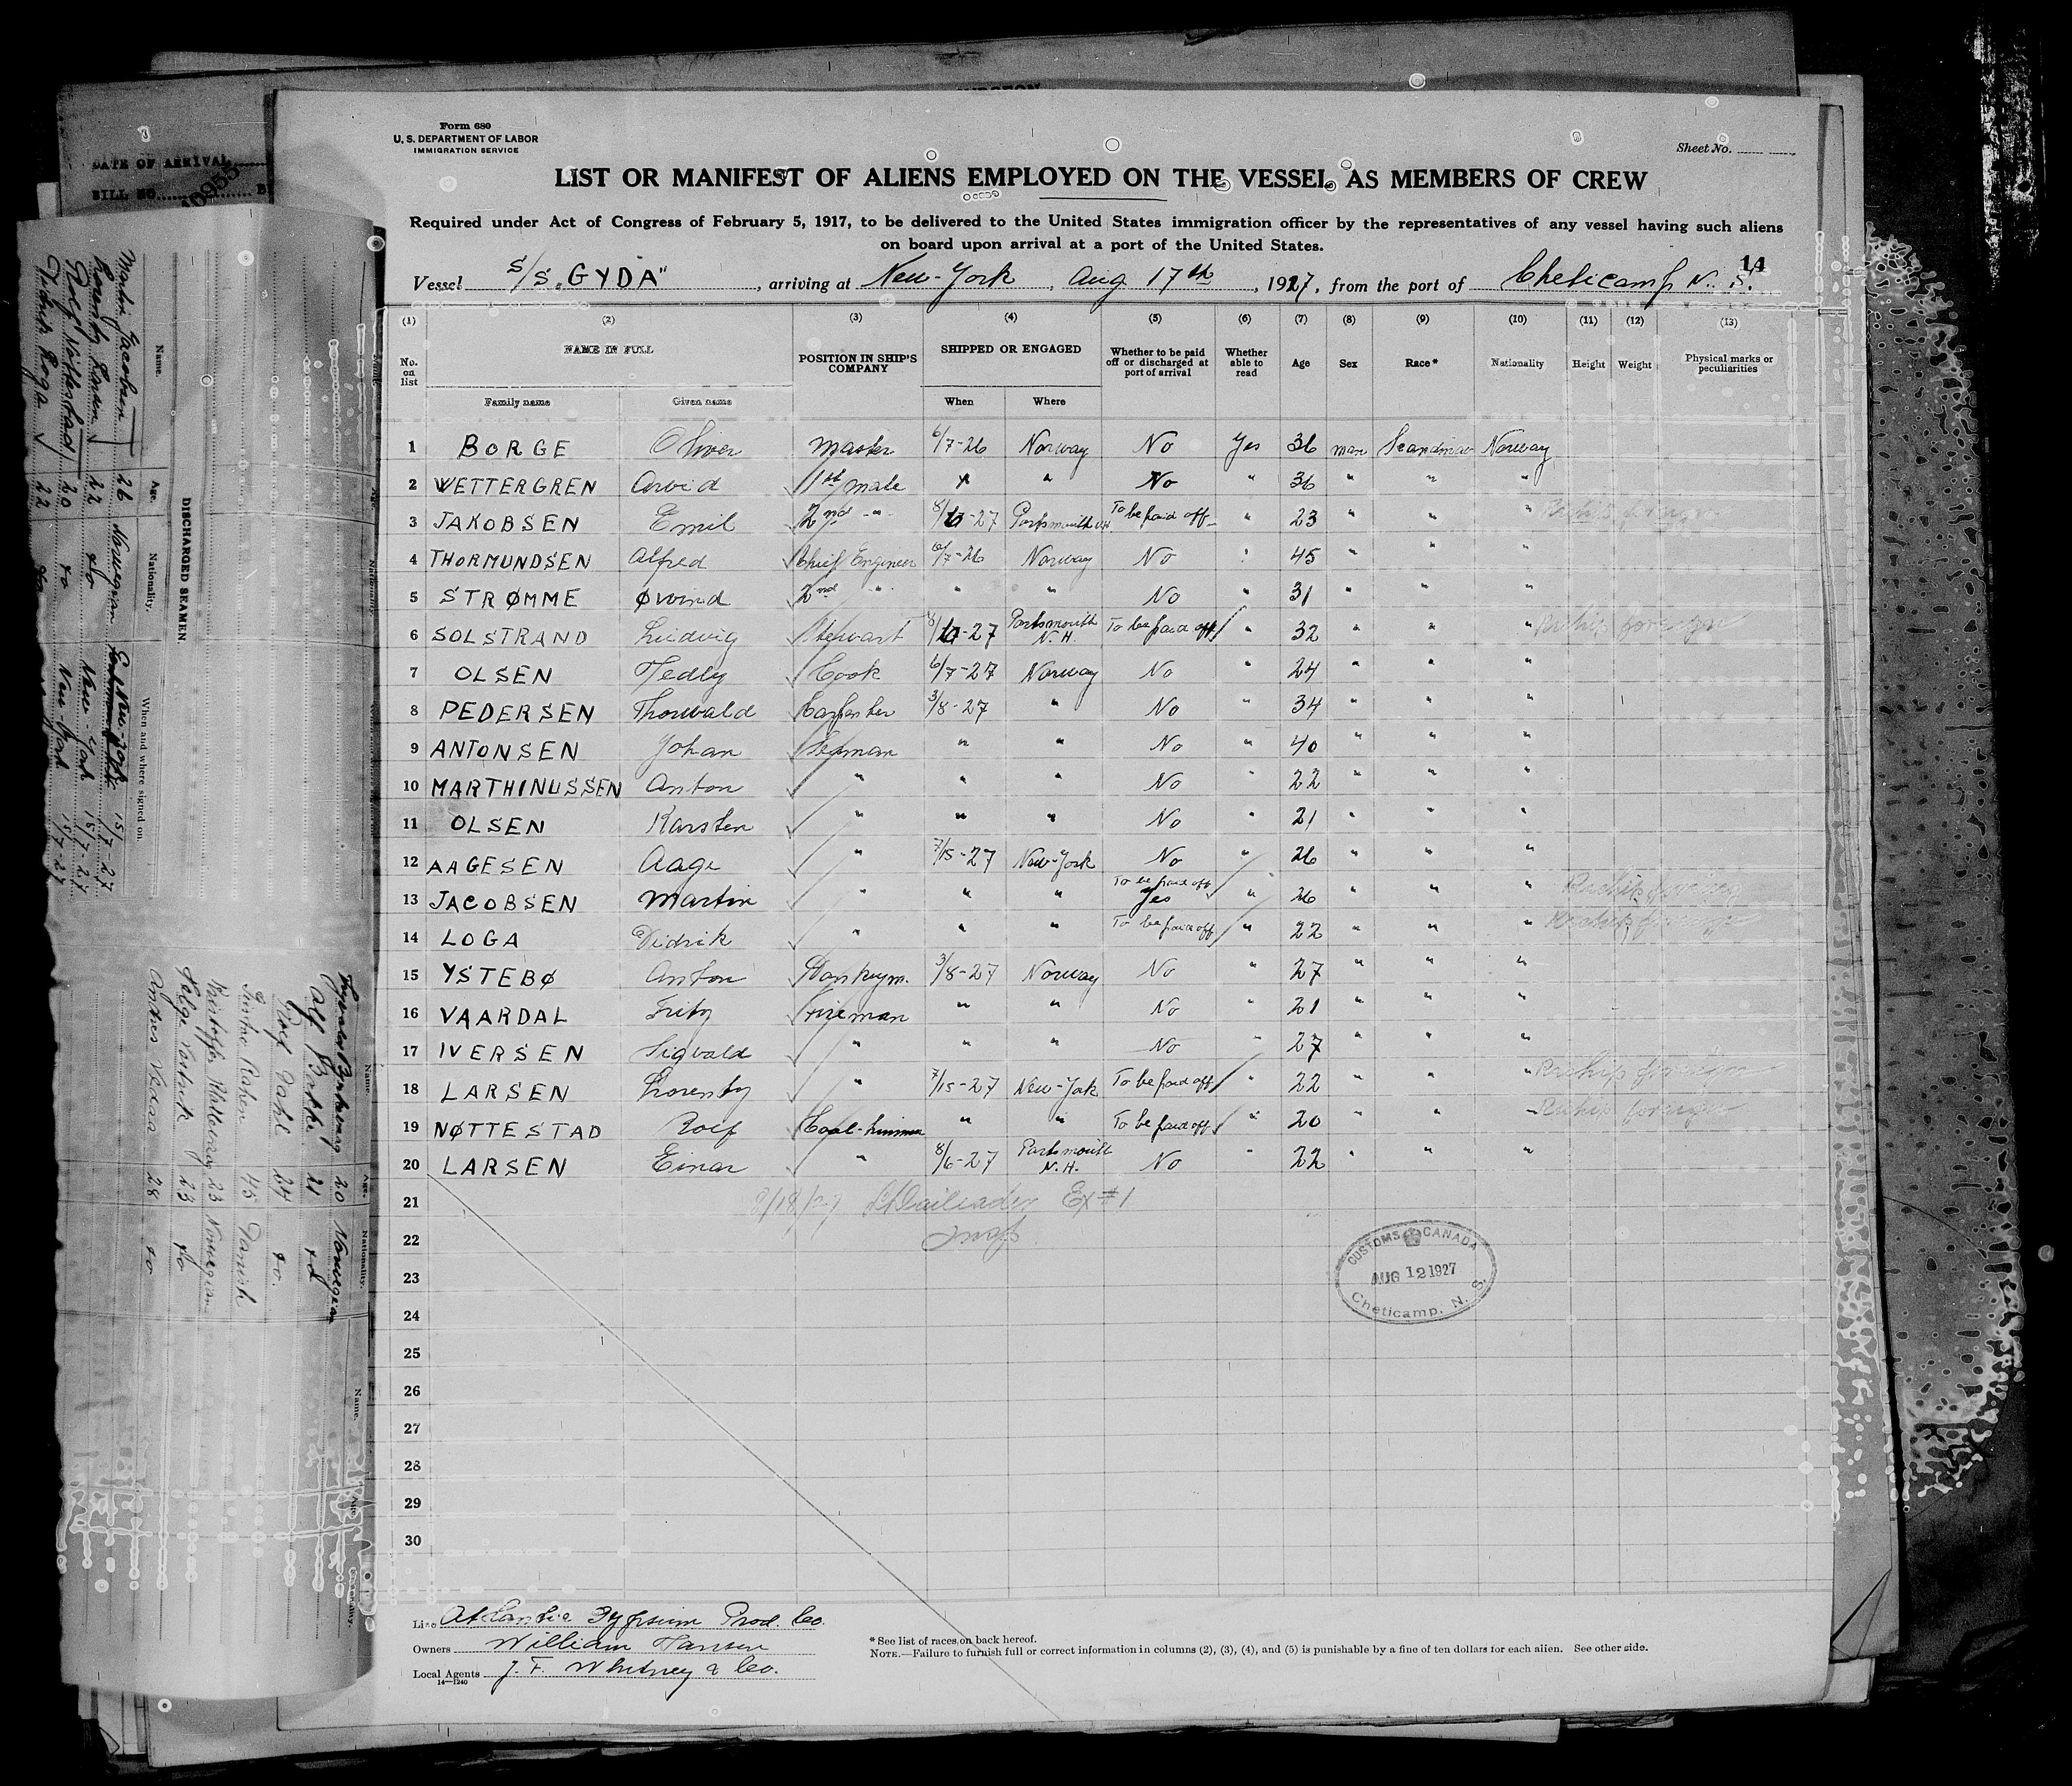 Form 680
U. S. DEPARTMENT OF LABOR
IMMIGRATION SERVICE
Sheet No.
LIST OR MANIFEST OF ALIENS EMPLOYED ON THE VESSEL AS MEMBERS OF CREW
Required under Act of Congress of February 5, 1917, to be delivered to the United States immigration officer by the representatives of any vessel having such aliens
on board upon arrival at a port of the United States.
14
Vessel S/S "GYDA", arriving at New-York, Aug 17th, 1927, from the port of Cheticamp N. S.
(1) (2) (3) (4) (5) (6) (7) (8) (9) (10) (11) (12) (13)
No. on list NAME IN FULL POSITION IN SHIP'S COMPANY SHIPPED OR ENGAGED Whether to be paid off or discharged at port of arrival Whether able to read Age Sex Race* Nationality Height Weight Physical marks or peculiarities
Family name Given name When Where
1 BORGE Oliver Master 6/7-26 Norway No Yes 36 man Scandinav Norway
2 WETTERGREN Arvid 1st mate " " No " 36 " " "
3 JAKOBSEN Emil 2nd " 8/6-27 Portsmouth N.H. To be paid off " 23 " " "
4 THORMUNDSEN Alfred Chief Engineer 6/7-26 Norway No " 45 " " "
5 STRØMME Øvind 2nd " " " No " 31 " " "
6 SOLSTRAND Ludvig Stewart 8/6-27 Portsmouth N.H. To be paid off " 32 " " " Reship foreign
7 OLSEN Hedly Cook 6/7-27 Norway No " 24 " " "
8 PEDERSEN Thorvald Carpenter 3/8-27 " No " 34 " " "
9 ANTONSEN Johan Seaman " " No " 40 " " "
10 MARTHINUSSEN Anton " " " No " 22 " " "
11 OLSEN Karsten " " " No " 21 " " "
12 AAGESEN Aage " 7/15-27 New-York No " 26 " " "
13 JACOBSEN Martin " " " To be paid off Yes " 26 " " " Reship foreign
14 LOGA Didrik " " " To be paid off " 22 " " " Reship foreign
15 YSTEBØ Anton Donkeym. 3/8-27 Norway No " 27 " " "
16 VAARDAL Fritz Fireman " " No " 21 " " "
17 IVERSEN Sigvald " " " No " 27 " " "
18 LARSEN Lorentz " 7/15-27 New-York To be paid off " 22 " " " Reship foreign
19 NØTTESTAD Rolf Coal-trimmer " " To be paid off " 20 " " " Reship foreign
20 LARSEN Einar " 8/6-27 Portsmouth N.H. No " 22 " " "
21 Ex #1
22
23
24
25
26
27
28
29
30
CUSTOMS CANADA
AUG 12 1927
Cheticamp, N. S.
Line Atlantic Gypsum Prod. Co.
Owners William Hansen
Local Agents J. F. Whitney & Co.
14—1240
*See list of races on back hereof.
NOTE.—Failure to furnish full or correct information in columns (2), (3), (4), and (5) is punishable by a fine of ten dollars for each alien. See other side.
DATE OF ARRIVAL
BILL NO.
DISCHARGED SEAMEN
Name. Age. Nationality. When and where signed on.
Martin Jacobsen 26 Norwegian New-York 15/7-27
Lorentz Larsen 22 do New-York 15/7-27
Rolf Nøttestad 20 do New York 15/7-27
Didrik Loga 22 do
Name. Age. Nationality.
20 Norwegian
Alf 21 do
Rolf Dahl 24 do.
45 Danish
23 Norwegian
Helge 23 do
Andreas 28 do